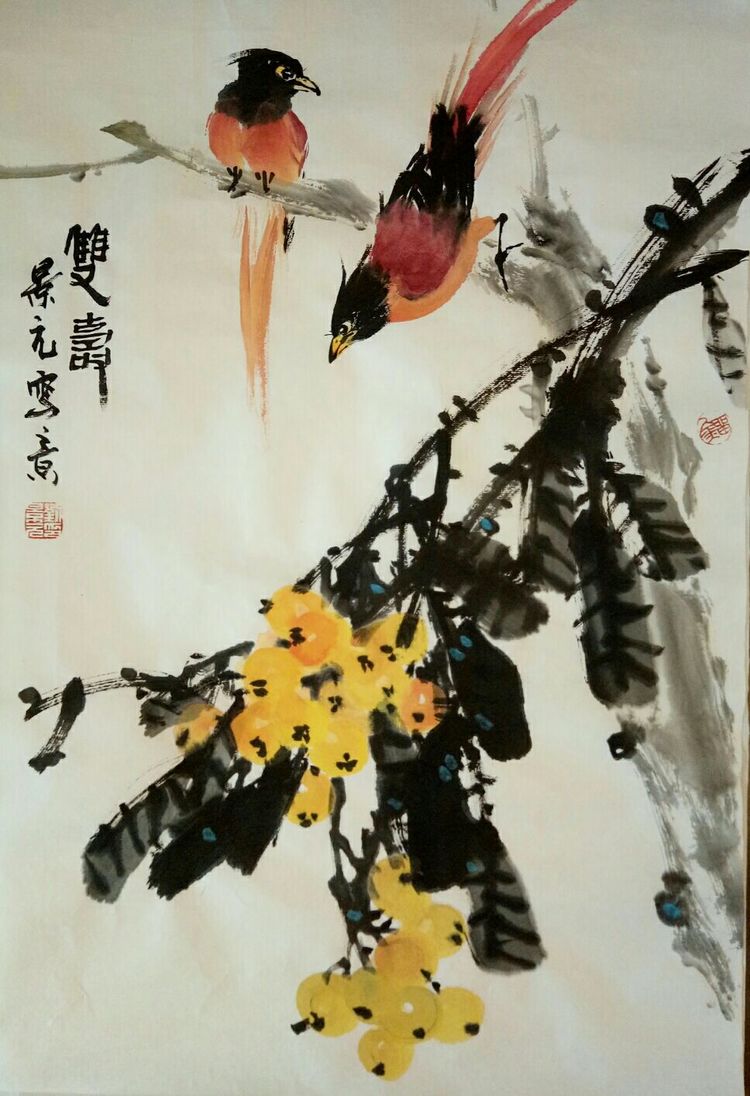 雙壽
景元寫意